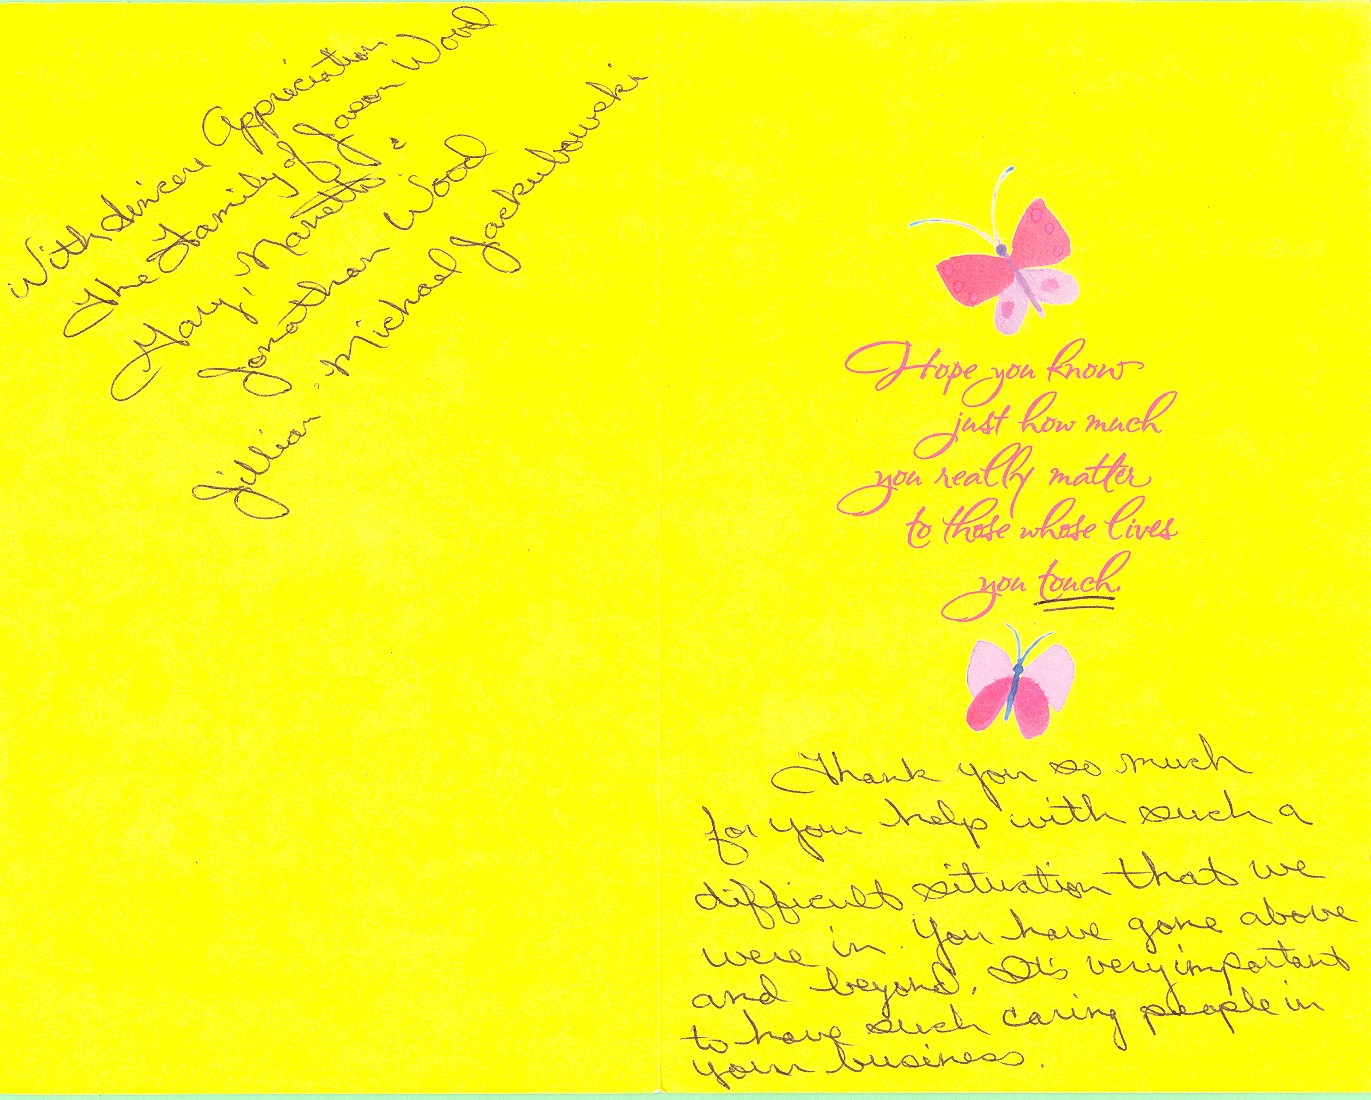 With Sincere Appriciation
The Family of Jason Wood
Gary, Nanette, &
Jonathan Wood
Jillian & Michael Jackubowski
Hope you know
just how much
you really matter
to those whose lives
you touch.
Thank you so much
for your help with such a
difficult situation that we
were in. You have gone above
and beyond. It's very important
to have such caring people in
your business.